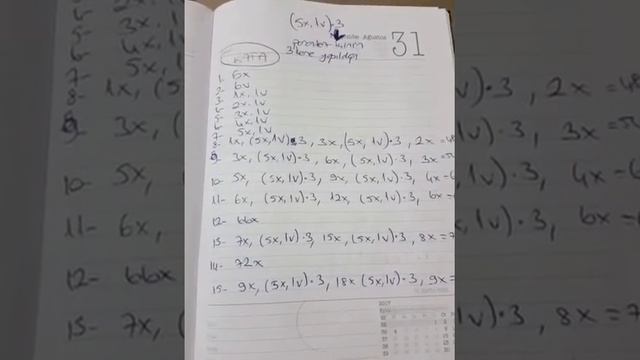 (5x,1v)•3
Ağustos 31
parantez
3 kere yapıldığı
KAFA
1- 6x
2- 6v
3- 1x,1v
4- 2x,1v
5- 3x,1v
6- 4x,1v
7- 5x,1v
8- 1x, (5x,1v)•3, 3x, (5x,1v)•3, 2x =48
9- 3x, (5x,1v)•3, 6x, (5x,1v)•3, 3x=
10- 5x, (5x,1v)•3, 9x, (5x,1v)•3, 4x=6
11- 6x, (5x,1v)•3, 12x, (5x,1v)•3, 6x=
12- 66x
13- 7x, (5x,1v)•3, 15x, (5x,1v)•3, 8x=7
14- 72x
15- 9x, (5x,1v)•3, 18x (5x,1v)•3, 9x=